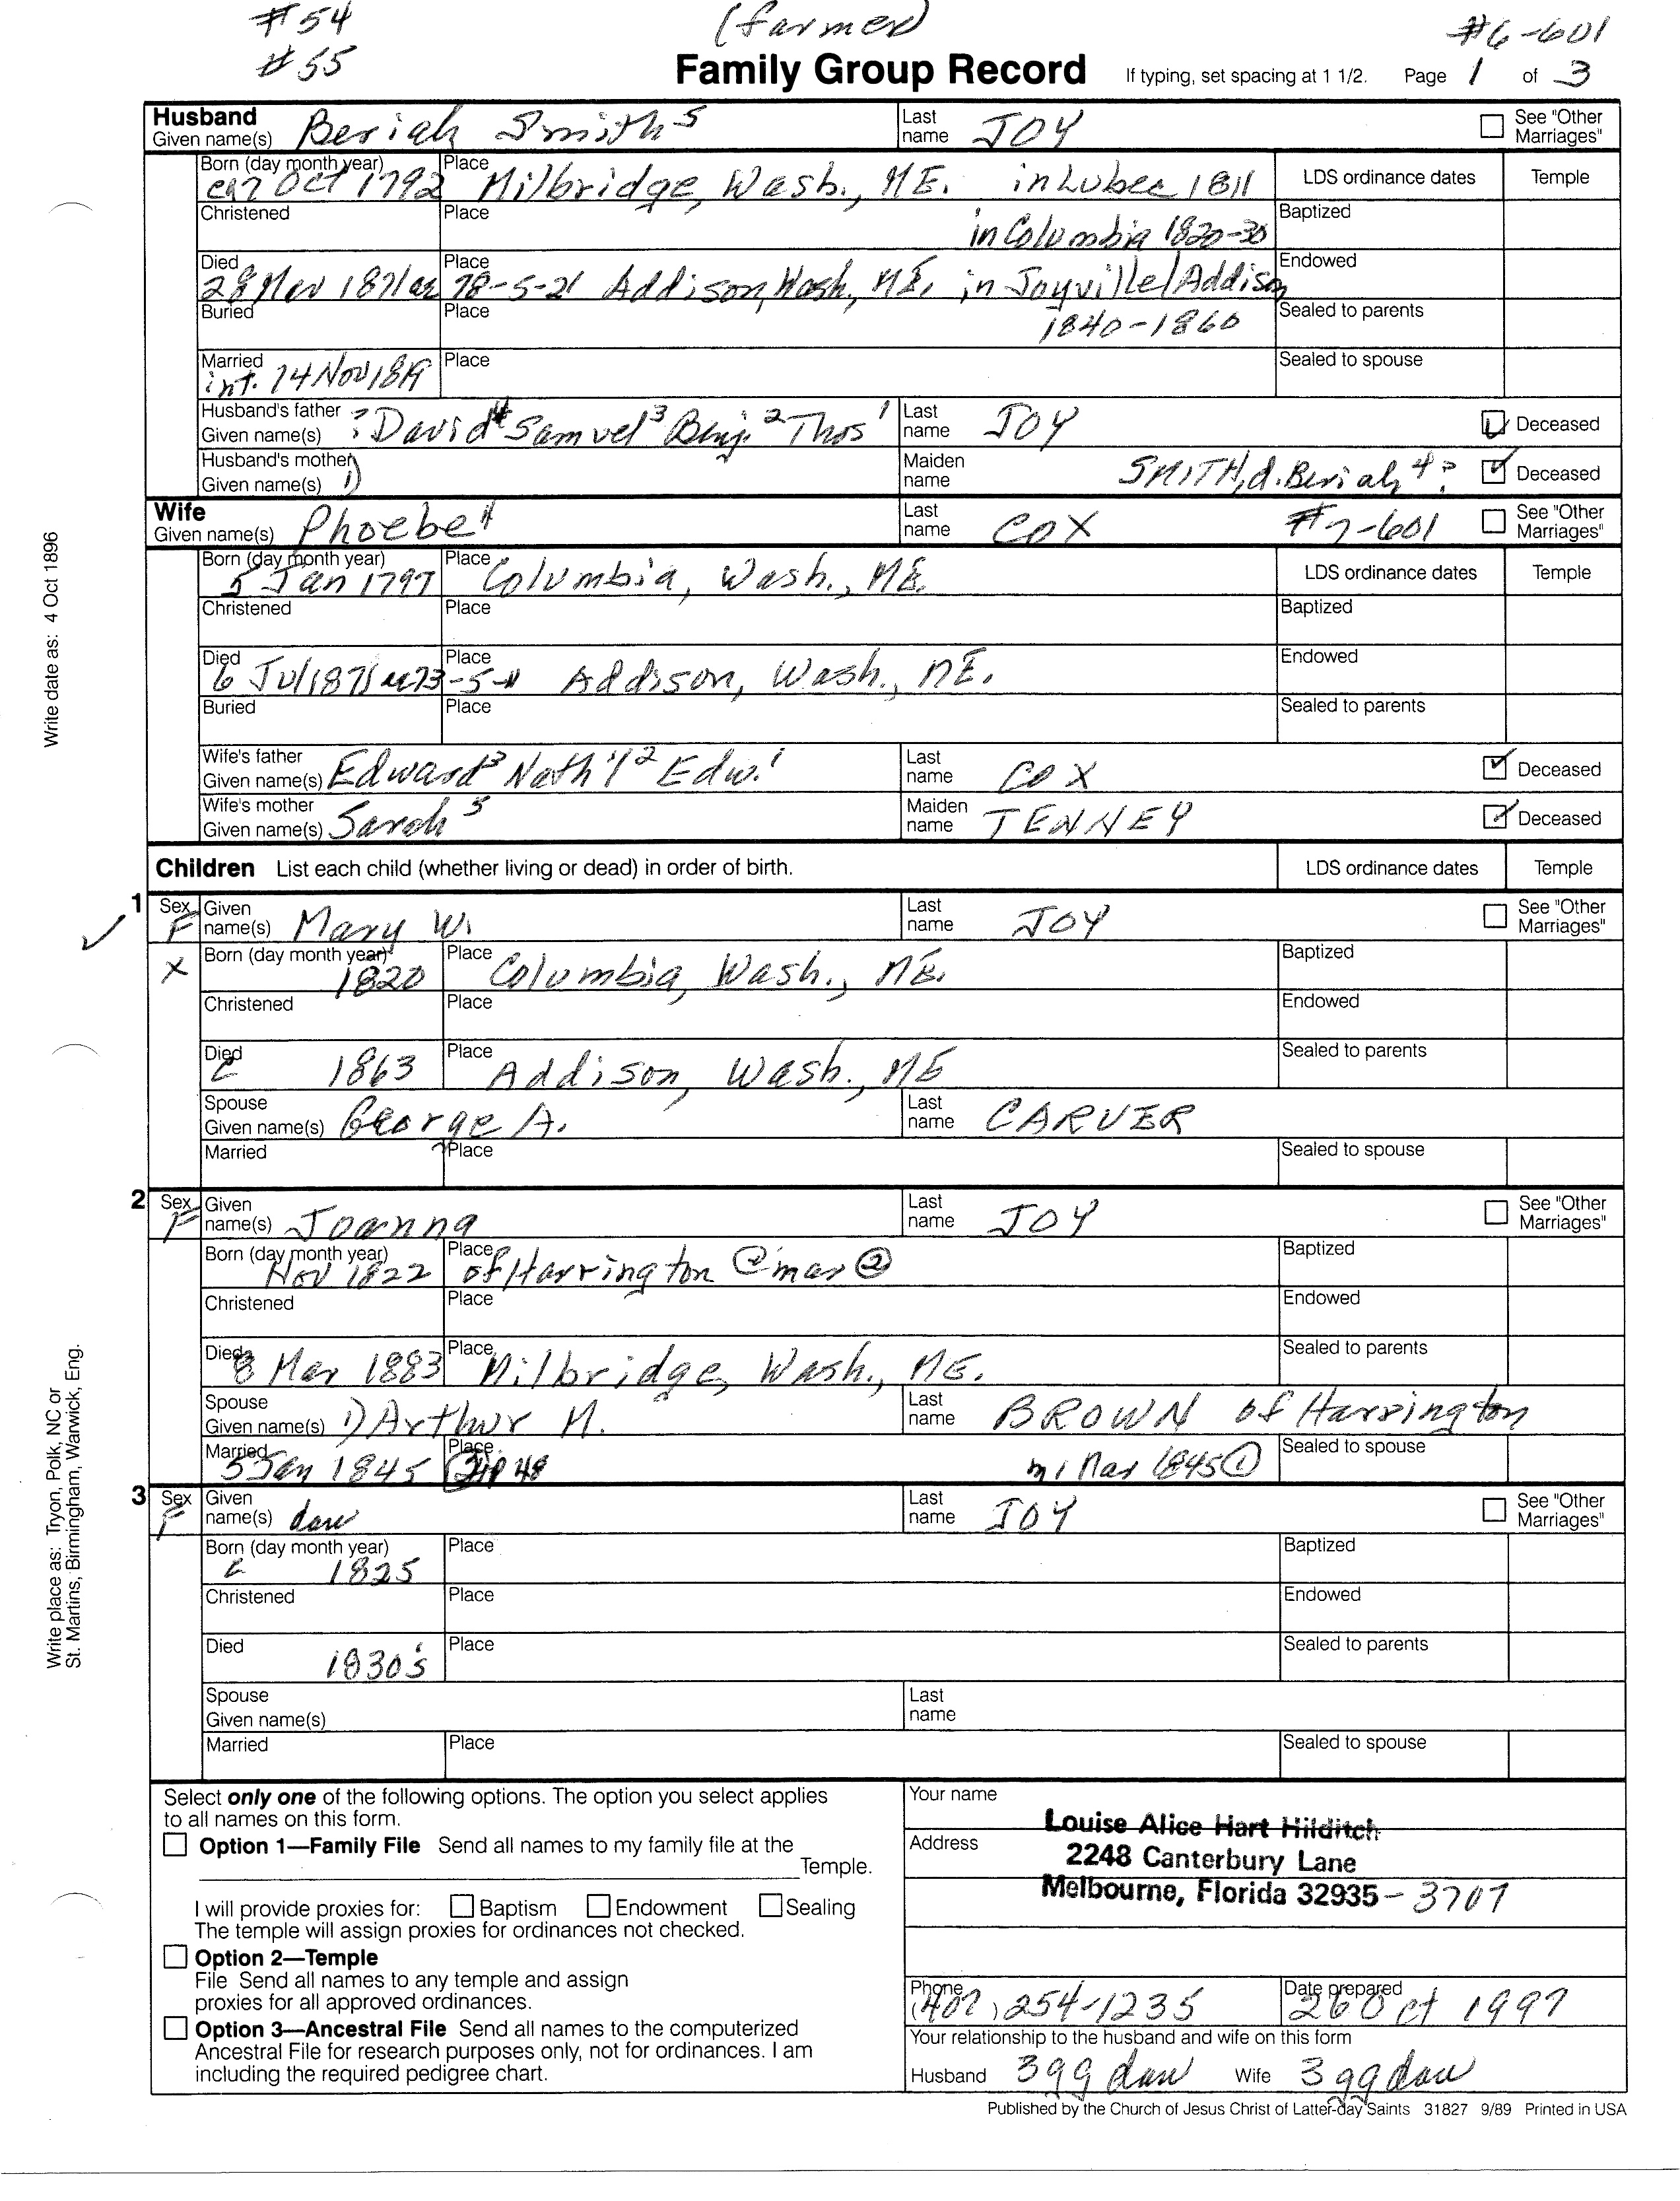 #54 (farmer) #6-601
#55
Family Group Record If typing, set spacing at 1 1/2. Page 1 of 3
Husband
Given name(s) Beriah Smith 5 Last name JOY See "Other Marriages"
Born (day month year) ca 7 Oct 1792 Place Milbridge, Wash., ME. in Lubec 1811 LDS ordinance dates Temple
Christened Place in Columbia 1820-30 Baptized
Died 28 Mar 1871 ae 78-5-21 Place Addison, Wash., ME. in Joyville/Addison Endowed
Buried Place 1840-1860 Sealed to parents
Married int. 14 Nov 1819 Place Sealed to spouse
Husband's father
Given name(s) ? David 4 Samuel 3 Benj. 2 Thos 1 Last name JOY Deceased
Husband's mother
Given name(s) 1) Maiden name SMITH, d. Beriah 4? Deceased
Wife
Given name(s) Phoebe 4 Last name COX #7-601 See "Other Marriages"
Born (day month year) 5 Jan 1797 Place Columbia, Wash., ME. LDS ordinance dates Temple
Christened Place Baptized
Died 6 Jul 1871 Place Addison, Wash., ME. Endowed
Buried Place Sealed to parents
Wife's father
Given name(s) Edward 3 Nath'l 2 Edw. 1 Last name COX Deceased
Wife's mother
Given name(s) Sarah 5 Maiden name TENNEY Deceased
Children List each child (whether living or dead) in order of birth. LDS ordinance dates Temple
1 Sex F Given name(s) Mary W. Last name JOY See "Other Marriages"
X Born (day month year) 1820 Place Columbia, Wash., ME. Baptized
Christened Place Endowed
Died c 1863 Place Addison, Wash., ME Sealed to parents
Spouse
Given name(s) George A. Last name CARVER
Married Place Sealed to spouse
2 Sex F Given name(s) Joanna Last name JOY See "Other Marriages"
Born (day month year) Nov 1822 Place of Harrington @ mar 2 Baptized
Christened Place Endowed
Died 8 Mar 1883 Place Milbridge, Wash., ME. Sealed to parents
Spouse
Given name(s) 1) Arthur M. Last name BROWN of Harrington
Married 5 Jan 1845 Place m 1 Mar 1845 1 Sealed to spouse
3 Sex F Given name(s) dau Last name JOY See "Other Marriages"
Born (day month year) c 1825 Place Baptized
Christened Place Endowed
Died 1830's Place Sealed to parents
Spouse
Given name(s) Last name
Married Place Sealed to spouse
Select only one of the following options. The option you select applies
to all names on this form.
Option 1—Family File Send all names to my family file at the
Temple.
I will provide proxies for: Baptism Endowment Sealing
The temple will assign proxies for ordinances not checked.
Option 2—Temple
File Send all names to any temple and assign
proxies for all approved ordinances.
Option 3—Ancestral File Send all names to the computerized
Ancestral File for research purposes only, not for ordinances. I am
including the required pedigree chart.
Your name
Louise Alice Hart Hilditch
Address
2248 Canterbury Lane
Melbourne, Florida 32935-3707
Phone (407) 254-1235 Date prepared 26 Oct 1997
Your relationship to the husband and wife on this form
Husband 3 gg dau Wife 3 gg dau
Published by the Church of Jesus Christ of Latter-day Saints 31827 9/89 Printed in USA
Write date as: 4 Oct 1896
Write place as: Tryon, Polk, NC or
St. Martins, Birmingham, Warwick, Eng.